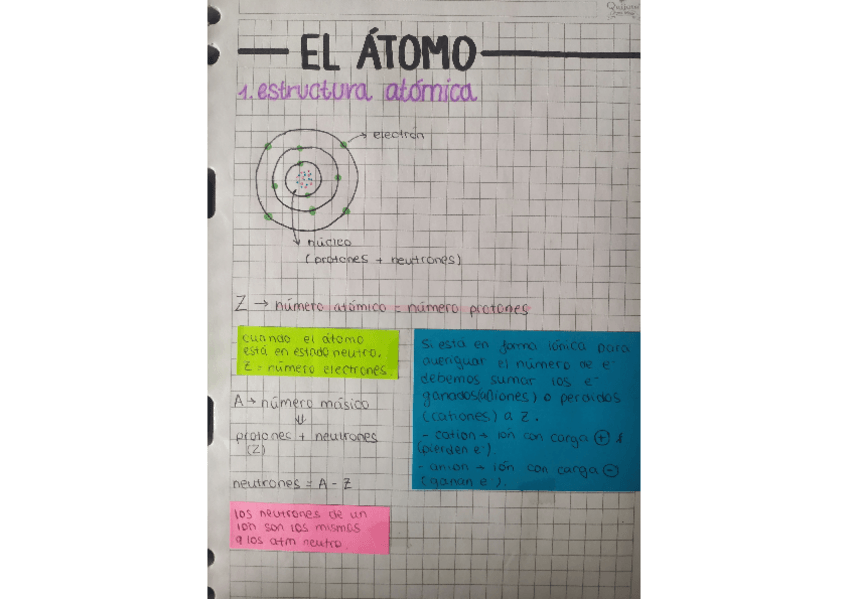 Química
EL ÁTOMO
1. estructura atómica
electrón
núcleo
(protones + neutrones)
Z → número atómico = número protones
cuando el átomo
está en estado neutro.
Z = número electrones
A → número másico
⇓
protones + neutrones
(Z)
neutrones = A - Z
los neutrones de un
ion son los mismos
q los atm neutro.
Si está en forma iónica para
averiguar el número de e⁻
debemos sumar los e⁻
ganados (aniones) o perdidos
(cationes) a Z.
- cation → ión con carga ⊕
(pierden e⁻).
- anion → ión con carga ⊖
(ganan e⁻).